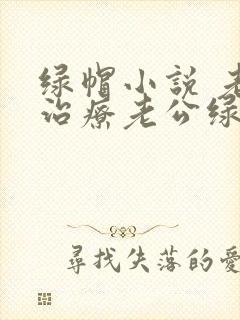 绿帽小说 老
治疗老公绿
尋找失落的愛